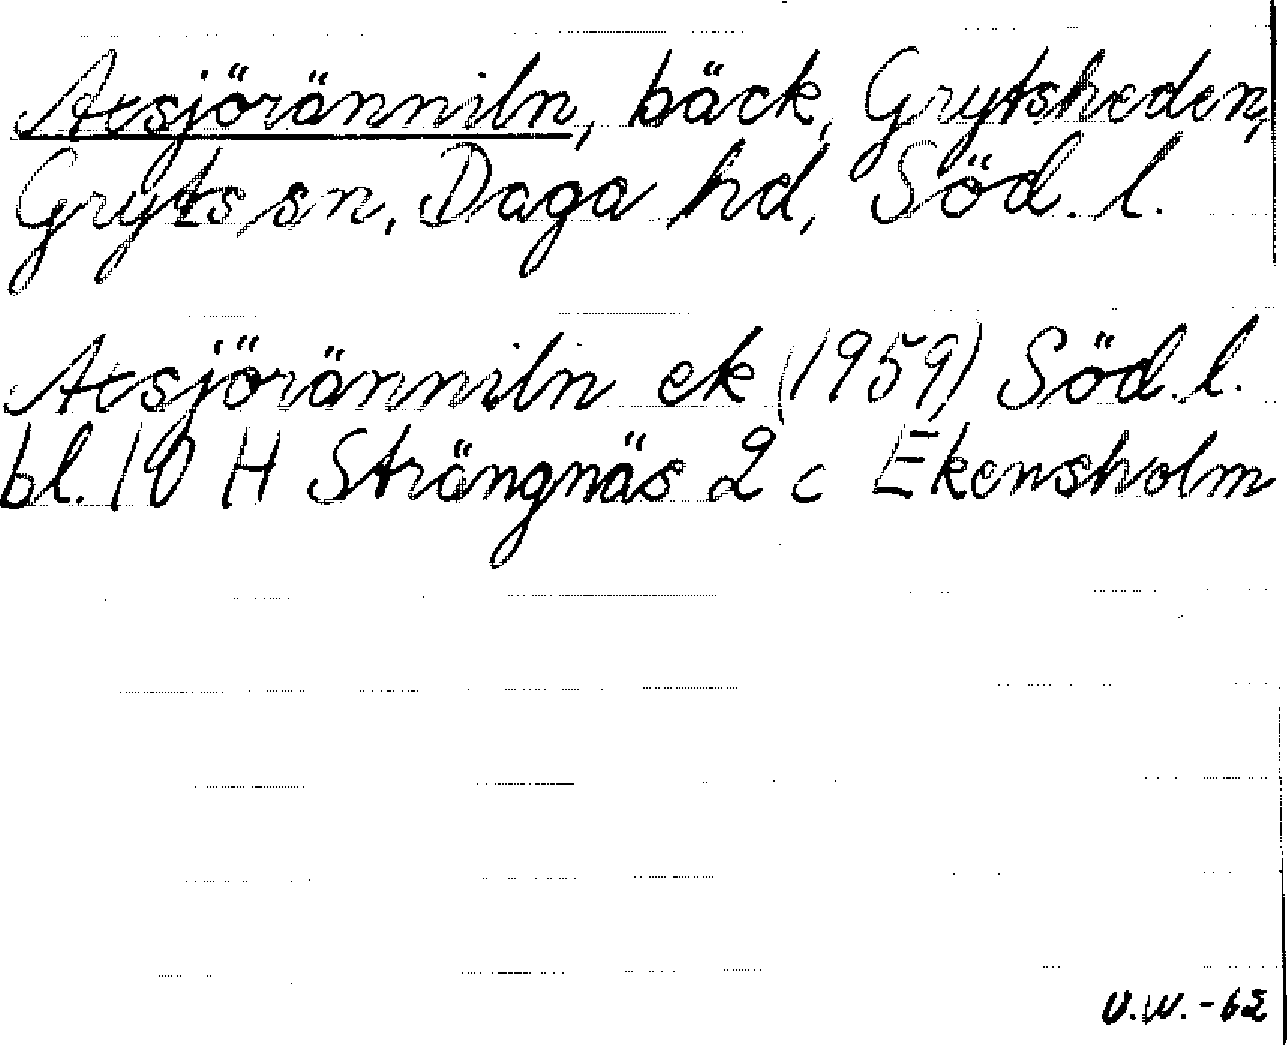 Acsjöränniln, bäck, Grytsheden,
Gryts sn, Daga hd, Söd. l.
Acsjöränniln ek (1959) Söd. l.
bl. 10 H Strängnäs 2 c Ekensholm
U.W. - 62